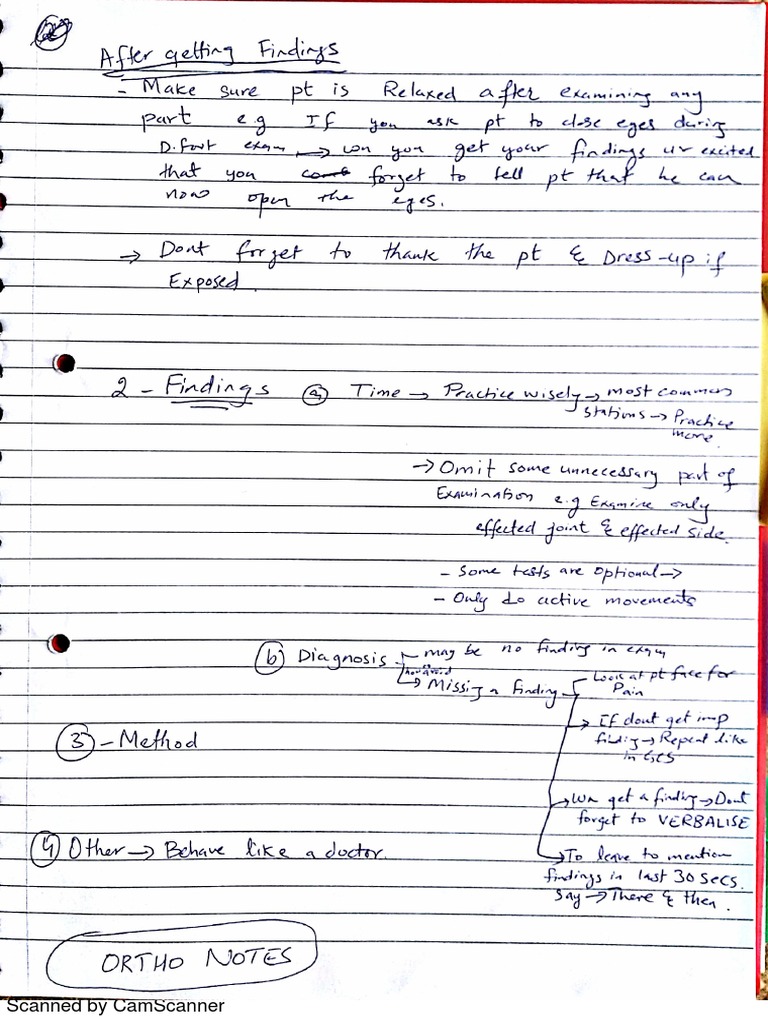 After getting Findings
- Make sure pt is Relaxed after examining any
part e.g If you ask pt to close eyes during
D. foot exam → wn you get your findings ur excited
that you forget to tell pt that he can
now open the eyes.
→ Dont forget to thank the pt & Dress-up if
Exposed.
2 - Findings (a) Time → Practice wisely → most common
stations → Practice
more.
→ Omit some unnecessary part of
Examination e.g Examine only
effected joint & effected side.
- Some tests are optional →
- Only do active movements
(b) Diagnosis - may be no finding in exam
→ Missing a finding - Look at pt face for
Pain
→ If dont get imp
finding → Repeat like
in GCS
(3) - Method
→ Wn get a finding → Dont
forget to VERBALISE
(4) Other → Behave like a doctor.
→ To leave to mention
findings in last 30 secs.
Say → There & then.
ORTHO NOTES
Scanned by CamScanner